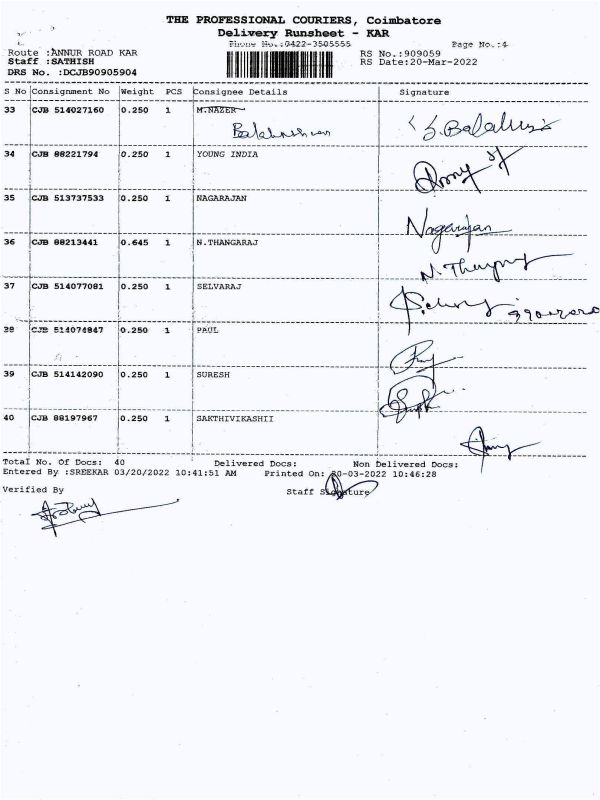 THE PROFESSIONAL COURIERS, Coimbatore
Delivery Runsheet - KAR
Phone No.:0422-3505555 Page No.:4
Route :ANNUR ROAD KAR RS No.:909059
Staff :SATHISH RS Date:20-Mar-2022
DRS No. :DCJB90905904
S No Consignment No Weight PCS Consignee Details Signature
33 CJB 514027160 0.250 1 M.NAZER
34 CJB 88221794 0.250 1 YOUNG INDIA
35 CJB 513737533 0.250 1 NAGARAJAN
Nagarajan
36 CJB 88213441 0.645 1 N.THANGARAJ
37 CJB 514077081 0.250 1 SELVARAJ
38 CJB 514074847 0.250 1 PAUL
39 CJB 514142090 0.250 1 SURESH
40 CJB 88197967 0.250 1 SAKTHIVIKASHII
Total No. Of Docs: 40 Delivered Docs: Non Delivered Docs:
Entered By :SREEKAR 03/20/2022 10:41:51 AM Printed On: 20-03-2022 10:46:28
Verified By Staff Signature